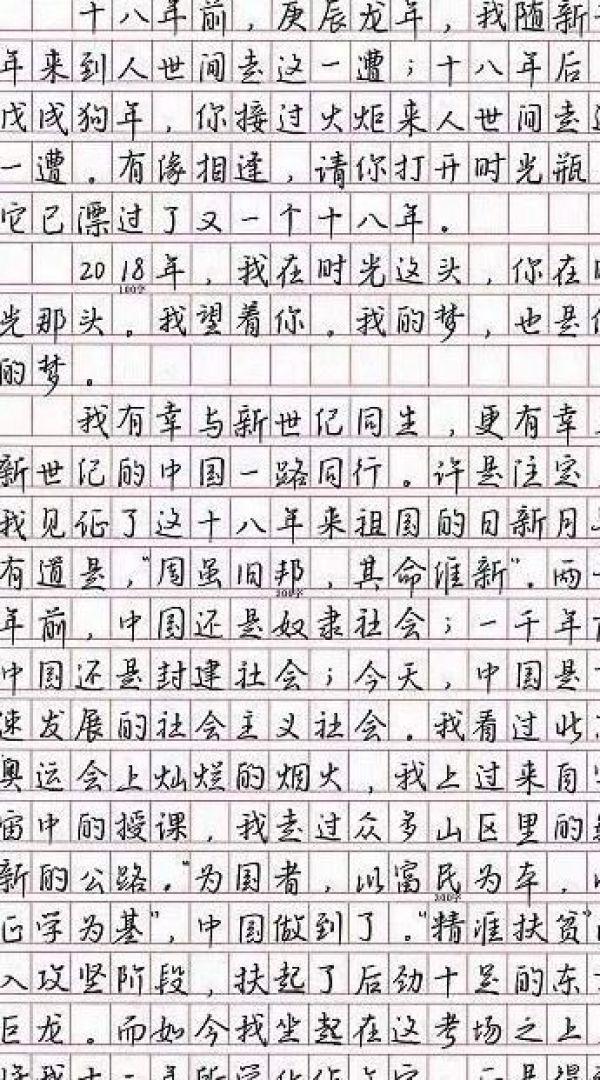 十八年前，庚辰龙年，我随新
年来到人世间走这一遭；十八年后
戊戌狗年，你接过火炬来人世间走这
一遭。有缘相逢，请你打开时光瓶
它已漂过了又一个十八年。
2018年，我在时光这头，你在时
光那头。我望着你。我的梦，也是你
的梦。
我有幸与新世纪同生，更有幸
新世纪的中国一路同行。许是注定
我见证了这十八年来祖国的日新月
有道是，“周虽旧邦，其命维新”。两
年前，中国还是奴隶社会；一千年前
中国还是封建社会；今天，中国是
速发展的社会主义社会。我看过北
奥运会上灿烂的烟火，我上过来自
宙中的授课，我走过众多山区里的
新的公路。“为国者，以富民为本，以
正学为基”，中国做到了。“精准扶贫”
入攻坚阶段，扶起了后劲十足的东
巨龙。而如今我坐起在这考场之上